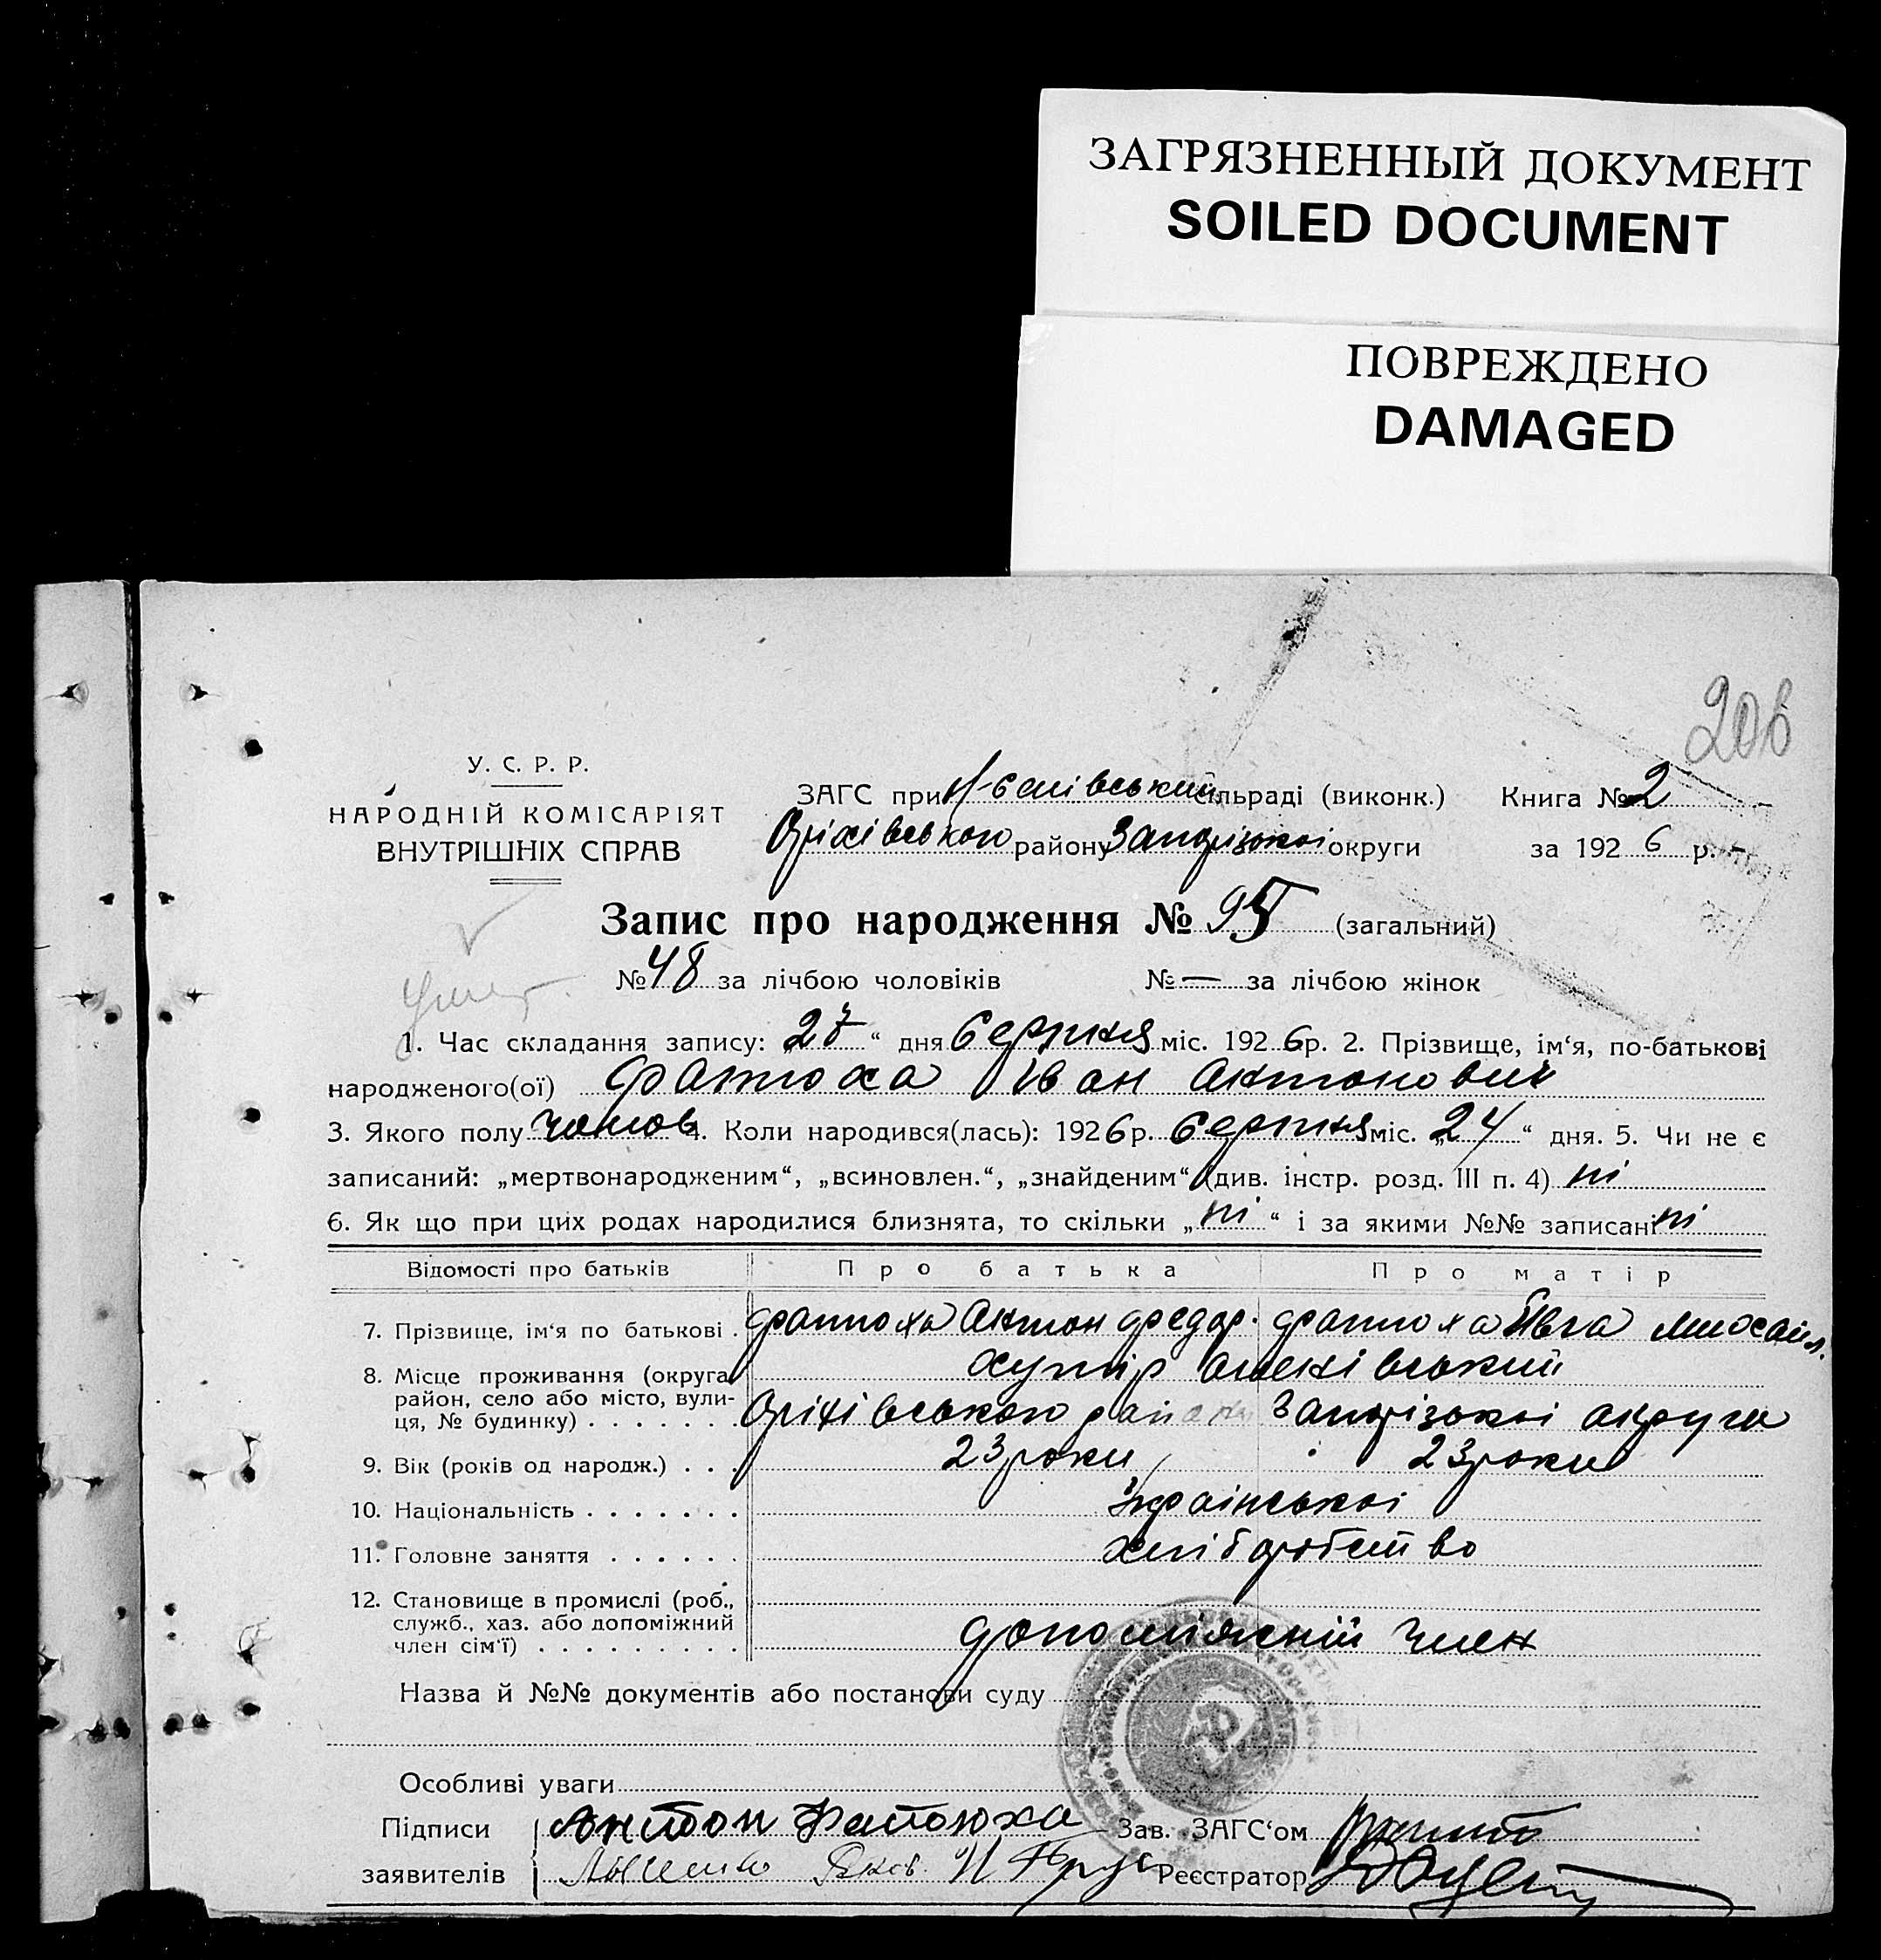 ЗАГРЯЗНЕННЫЙ ДОКУМЕНТ
SOILED DOCUMENT
ПОВРЕЖДЕНО
DAMAGED
206
У. С. Р. Р.
НАРОДНІЙ КОМІСАРІЯТ
ВНУТРІШНІХ СПРАВ
ЗАГС при сільраді (виконк.) Книга № 2
Оріхівського району Запорізькоі округи за 1926 р.
Запис про народження № 95 (загальний)
№ 48 за лічбою чоловіків № — за лічбою жінок
1. Час складання запису: „27“ дня Серпня міс. 1926 р. 2. Прізвище, ім‘я, по-батькові
народженого(ої) Фатюха Іван Антонович
3. Якого полу чолов 4. Коли народився(лась): 1926 р. Серпня міс. „24“ дня. 5. Чи не є
записаний: „мертвонародженим“, „всиновлен.“, „знайденим“ (див. інстр. розд. III п. 4) ні
6. Як що при цих родах народилися близнята, то скільки „ні“ і за якими №№ записані ні
Відомості про батьків Про батька Про матір
7. Прізвище, ім‘я по батькові . Фатюха Антон Федор. Фатюха Ївга Михайл.
8. Місце проживання (округа, хутір
район, село або місто, вули-
ця, № будинку) . . . . . . Оріхівського району Запорізькоі округи
9. Вік (років од народж.) . . . 23 роки 23 роки
10. Національність . . . . . . . Українськоі
11. Головне заняття . . . . . . хліборобство
12. Становище в промислі (роб.,
служб., хаз. або допоміжний
член сім‘ї) . . . . . . . . . допоміжній член
Назва й №№ документів або постанови суду
Особливі уваги
Підписи Антон Фатюха Зав. ЗАГС‘ом
заявителів Реєстратор